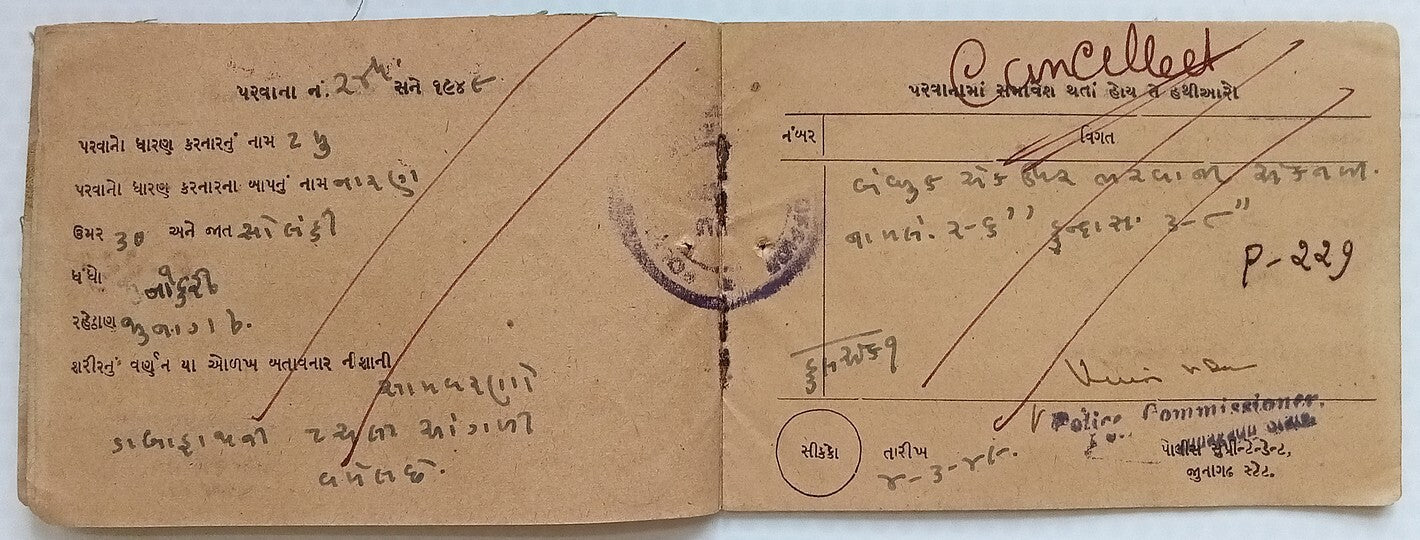 પરવાના નં. ૨૪૫ સને ૧૯૪૯
પરવાનો ધારણ કરનારનું નામ ટપુ
પરવાનો ધારણ કરનારના બાપનું નામ નારણ
ઉમર ૩૦ અને જાત સોલંકી
ધંધો નોકરી
રહેઠાણ જુનાગઢ.
શરીરનું વર્ણન યા ઓળખ બતાવનાર નીશાની
સામવરણો
ડાબાહાથની ટચલી આંગળી
Cancelled
પરવાનામાં સમાવેશ થતાં હોય તે હથીઆરો
નંબર વિગત
બંધુક એક ભરવાની એકનળી.
૨-૬" કુન્દાસ. ૩-૮"
P-229
કુલ એક ૧
Police Commissioner.
સીક્કો તારીખ પોલીસ સુપ્રીન્ટેન્ડેન્ટ,
૪-૩-૪૯. જુનાગઢ સ્ટેટ.